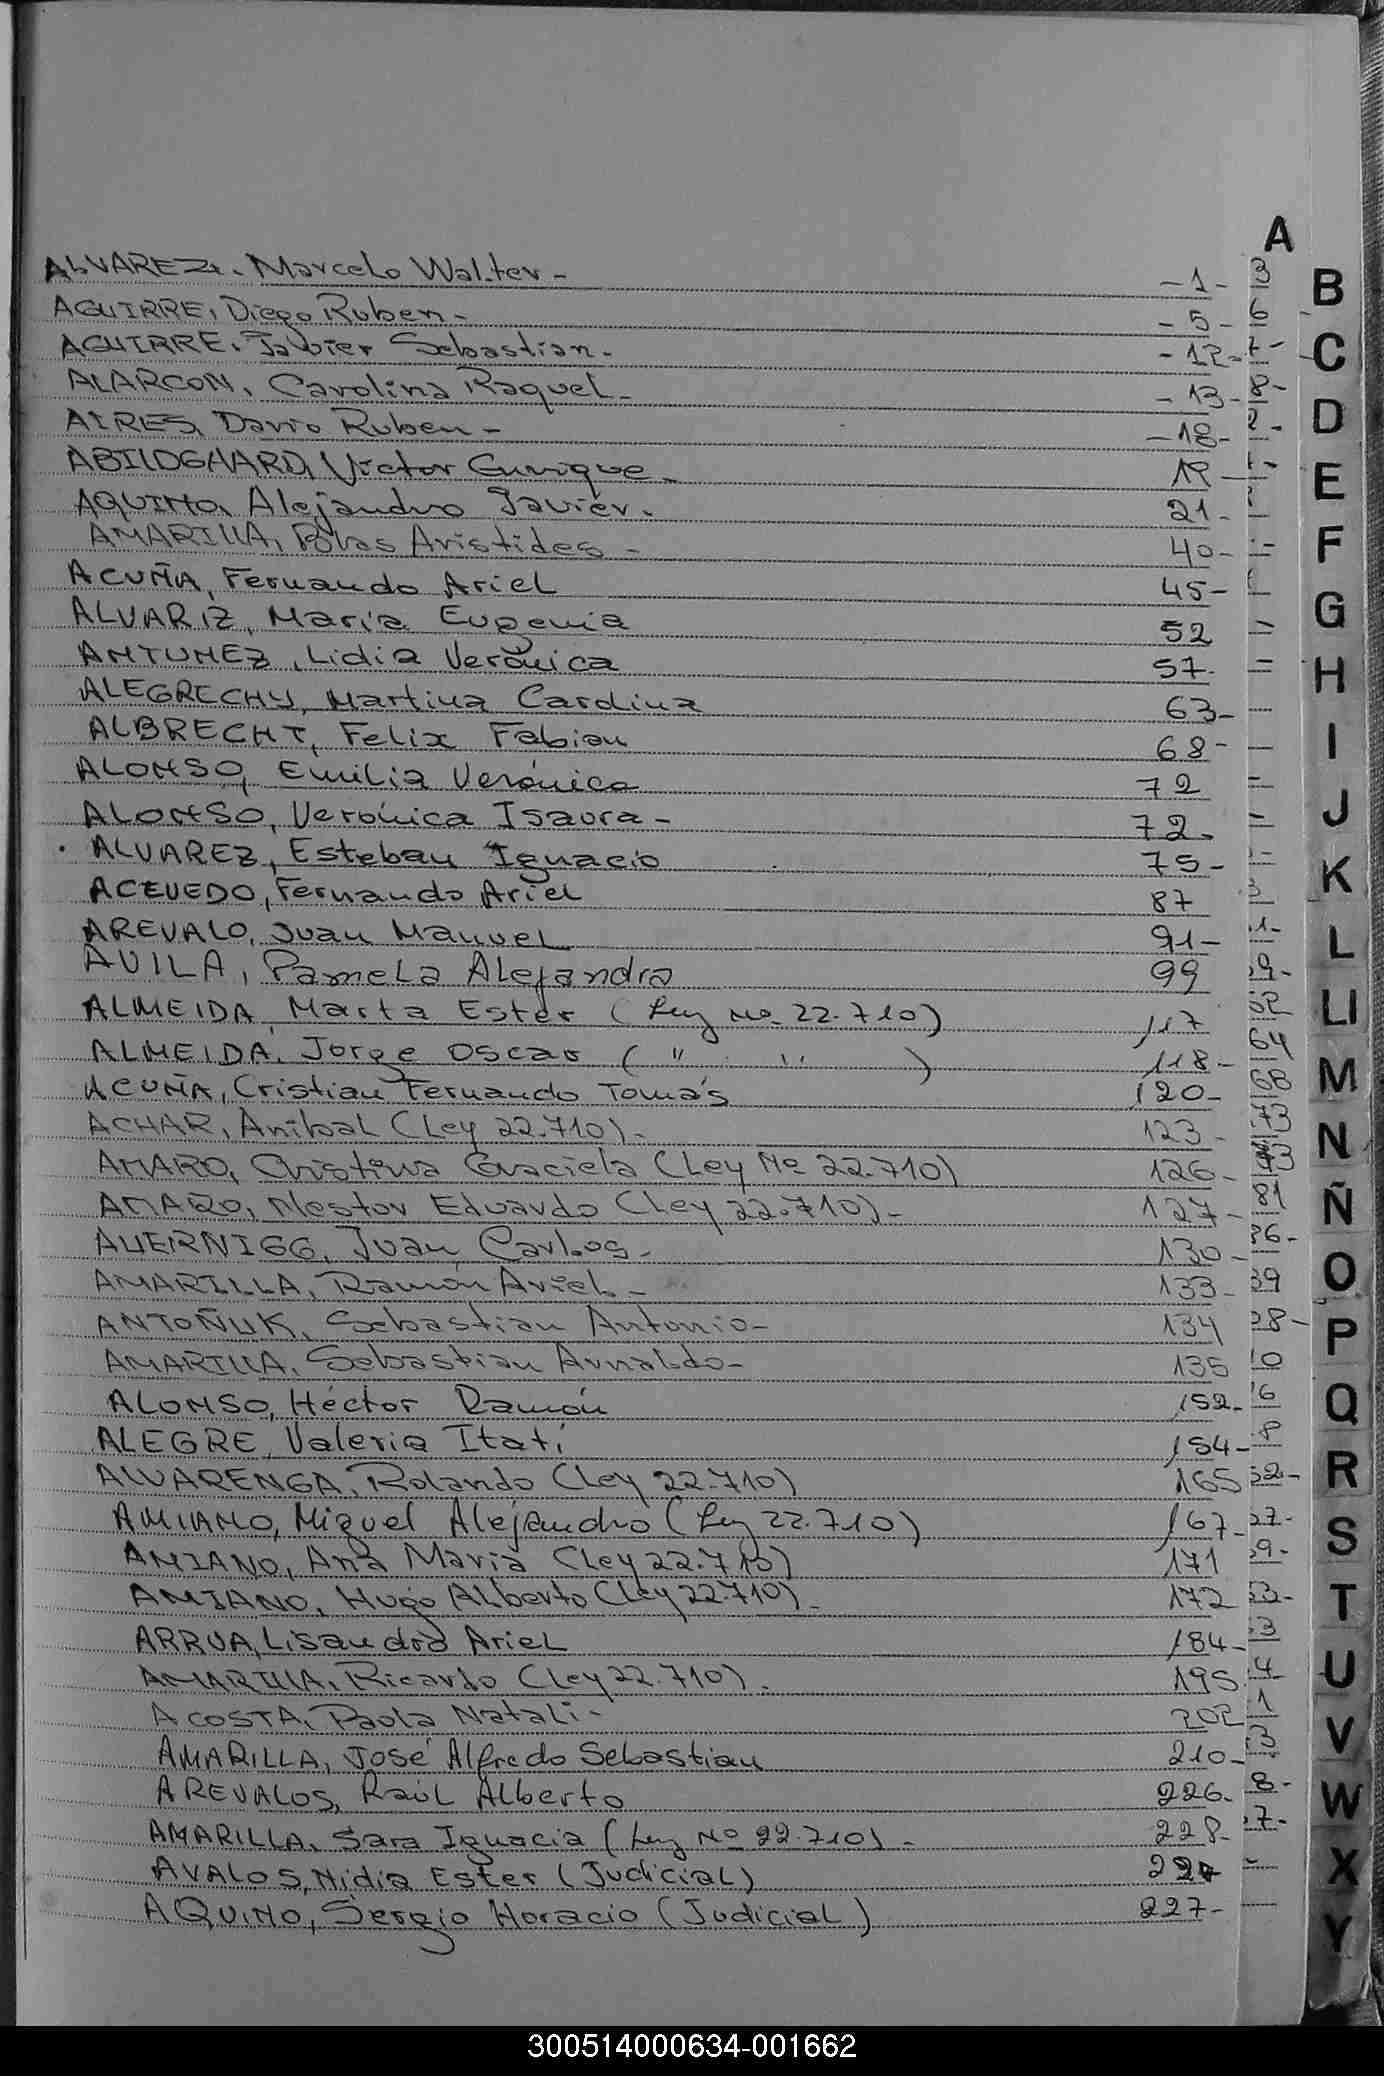 A
ALVAREZ, Marcelo Walter - - 1 -
AGUIRRE, Diego Ruben - - 5 -
AGUIRRE, Javier Sebastian. - 12 -
ALARCON, Carolina Raquel - - 13 -
AIRES, Dario Ruben - - 18 -
ABILDGHARD, Victor Enrique - 19 -
AQUINO, Alejandro Javier. 21 -
AMARILLA, Aristides - 40 -
ACUÑA, Fernando Ariel 45 -
ALVARIZ, María Eugenia 52
ANTUNEZ, Lidia Verónica 57 -
ALEGRECHY, Martina Carolina 63 -
ALBRECHT, Felix Fabian 68 -
ALONSO, Emilia Verónica 72
ALONSO, Verónica Isaura - 72 -
ALVAREZ, Esteban Ignacio 75 -
ACEVEDO, Fernando Ariel 87
AREVALO, Juan Manuel 91 -
AVILA, Pamela Alejandra 99
ALMEIDA, Marta Ester (Ley Nº 22.710) 117
ALMEIDA, Jorge Oscar ( " " ) 118 -
ACUÑA, Cristian Fernando Tomás 120 -
ACHAR, Anibal (Ley 22.710) - 123 -
AMARO, Cristina Graciela (Ley Nº 22.710) 126 -
AMARO, Nestor Eduardo (Ley 22.710) - 127 -
AUERNIGG, Juan Carlos - 130 -
AMARILLA, Ramón Ariel - 133 -
ANTOÑUK, Sebastian Antonio - 134
AMARILLA, Sebastian Arnaldo - 135
ALONSO, Héctor Ramón 152 -
ALEGRE, Valeria Itatí 154 -
ALVARENGA, Rolando (Ley 22.710) 165
AMIANO, Miguel Alejandro (Ley 22.710) 167 -
AMIANO, Ana Maria (Ley 22.710) 171
AMIANO, Hugo Alberto (Ley 22.710) - 172
ARRUA, Lisandro Ariel 184 -
AMARILLA, Ricardo (Ley 22.710) - 195
ACOSTA, Paola Natali - 202
AMARILLA, José Alfredo Sebastian 210 -
AREVALOS, Raúl Alberto 226 -
AMARILLA, Sara Ignacia (Ley Nº 22.710) - 228 -
AVALOS, Nidia Ester (Judicial)
AQUINO, Sergio Horacio (Judicial) 227 -
B
C
D
E
F
G
H
I
J
K
L
Ll
M
N
Ñ
O
P
Q
R
S
T
U
V
W
X
Y
300514000634-001662